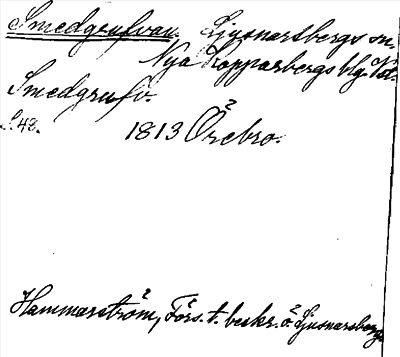 Smedgrufvan. Ljusnarsbergs sn.
Nya Kopparbergs blg. Vstm.
Smedgrufv.
S. 48. 1813 Örebro.
Hammarström, Förs. t. beskr. ö. Ljusnarsberg